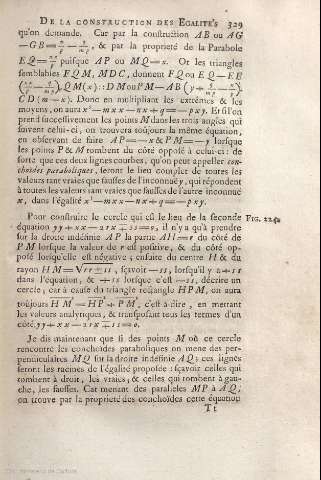 DE LA CONSTRUCTION DES EGALITE'S 329
qu'on demande. Car par la construction AB ou AG
puisque AP ou MQ=x. Or les triangles
semblables FQM, MDC, donnent FQ ou EQ—EB
QM(x)::DM ou PM—AB
CD(m—x). Donc en multipliant les extrêmes & les
moyens, on aura x³—mxx—nx+q==—pxy. Et si l'on
prend successivement les points M dans les trois angles qui
suivent celui-ci, on trouvera toûjours la même équation,
en observant de faire AP==—x & PM==—y lorsque
les points P & M tombent du côté opposé à celui-ci: de
sorte que ces deux lignes courbes, qu'on peut appeller con-
choïdes paraboliques, seront le lieu complet de toutes les
valeurs tant vraies que fausses de l'inconnuë y, qui répondent
à toutes les valeurs tant vraies que fausses de l'autre inconnuë
x, dans l'égalité x³—mxx—nx+q==—pxy.
Pour construire le cercle qui est le lieu de la seconde FIG. 224.
équation yy+xx—2rx∓ss==0, il n'y a qu'à prendre
sur la droite indéfinie AP la partie AH==r du côté de
PM lorsque la valeur de r est positive, & du côté op-
posé lorsqu'elle est négative; ensuite du centre H & du
rayon HM==√rr±ss, sçavoir —ss, lorsqu'il y a +ss
dans l'équation, & +ss lorsque c'est —ss, décrire un
cercle; car à cause du triangle rectangle HPM, on aura
toûjours HM==HP+PM, c'est-à-dire, en mettant
les valeurs analytiques, & transposant tous les termes d'un
côté, yy+xx—2rx∓ss==0.
Je dis maintenant que si des points M où ce cercle
rencontre les conchoïdes paraboliques on mene des per-
pendiculaires MQ sur la droite indéfinie AQ; ces lignes
seront les racines de l'égalité proposée: sçavoir celles qui
tombent à droit, les vraies, & celles qui tombent à gau-
che, les fausses. Car menant des paralleles MP à AQ;
on trouve par la proprieté des conchoïdes cette équation
Tt